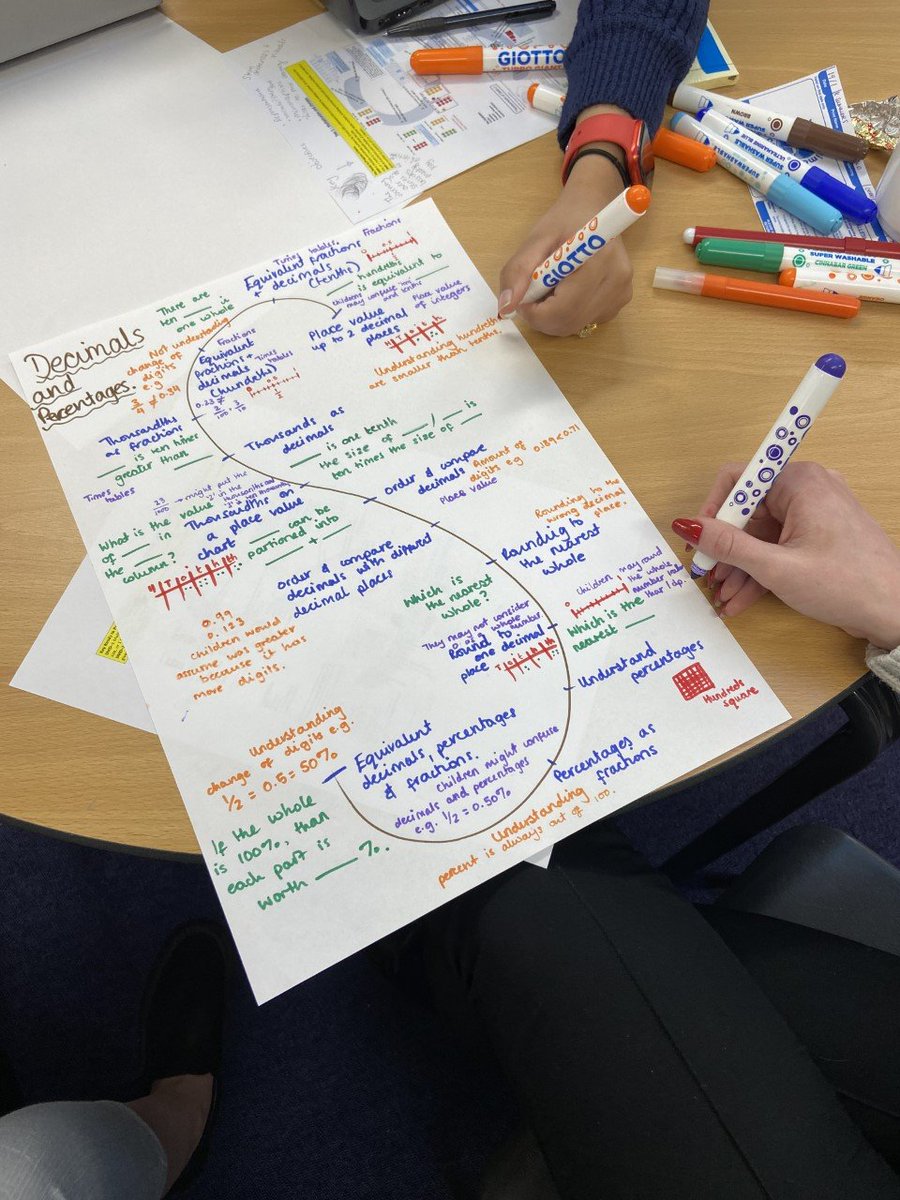 Decimals
and
Percentages.
There are
ten ___ in
one whole
Times tables.
Fractions
Equivalent fractions
+ decimals
(tenths)
___ hundredths
is equivalent to ___
Children
may confuse
and tenths
Place value
up to 2 decimal
places
Place value
of integers
Understanding hundredths
are smaller than tenths.
Not understanding
change of
digits
e.g
Fractions
Equivalent
fractions +
decimals
(hundreths)
Times
tables
Thousandths
as fractions
___ is ten times
greater than ___
Times
tables
Thousands as
decimals
___ is one tenth
the size of ___ / ___ is
ten times the size of ___
order & compare
decimals
Place value
Amount of
digits e.g
0.189 < 0.71
23
might put the
What is the value
of ___ in
the ___
column?
Thousandths on
a place value
chart
___ can be
partioned into
___ + ___
order & compare
decimals with different
decimal places
Rounding to the
wrong decimal
place.
Rounding to
the nearest
whole
Which is
the nearest
whole?
Children may round
the whole
number
1dp.
Which is the
nearest ___
They may not consider
0 as whole
number
Round to
one decimal
place
0.99
0.123
Children would
assume was greater
because it has
more digits.
Understand
percentages
Hundreds
square
Percentages as
fractions
Understanding
percent is always out of 100.
Equivalent
decimals, percentages
& fractions.
Children might confuse
decimals and percentages
e.g. 1/2 = 0.50%
Understanding
change of digits e.g.
1/2 = 0.5 = 50%
If the whole
is 100%, than
each part is
worth ___ %.
GIOTTO
TURBO GIANT
GIOTTO
BROWN
SUPER WASHABLE
ULTRAMARINE BLUE
SUPER WASHABLE
SUPER WASHABLE
CINNABAR GREEN